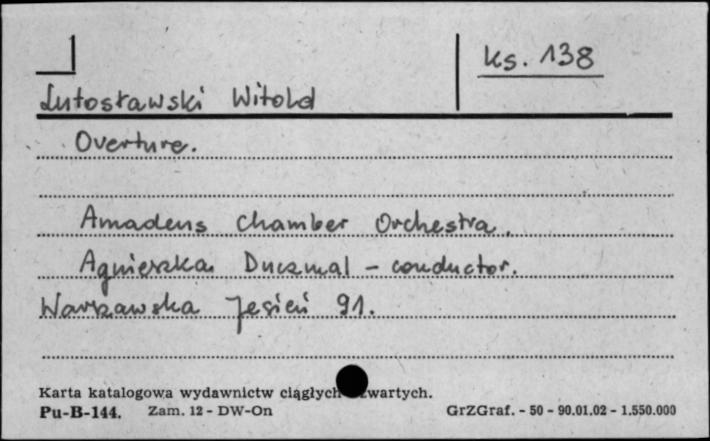 ks. 138
Lutosławski Witold
Overture.
Amadeus Chamber Orchestra.
Agnieszka Duczmal - conductor.
Warszawska Jesień 91.
Karta katalogowa wydawnictw ciągłych
Pu-B-144. Zam. 12 - DW-On GrZGraf. - 50 - 90.01.02 - 1.550.000